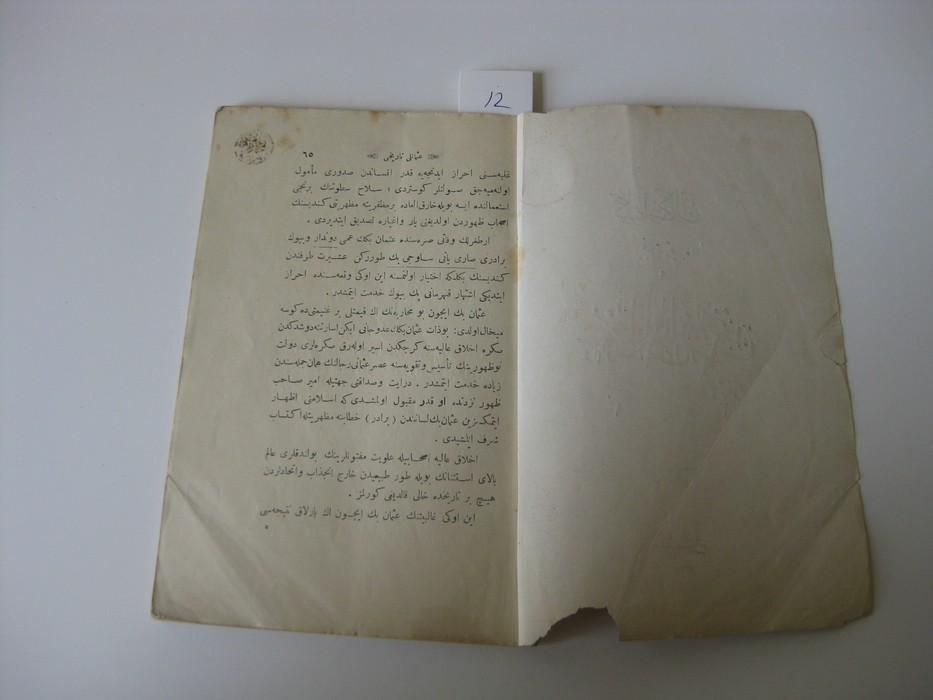 12
عثمانلی تاریخی
٦٥
غلبه‌سنی احراز ایدنجه‌یه قدر افساندن صدوری مأمول
اولنه‌میه‌جق صولتلر کوستردی ؛ سلاح سطوتنك برنجی
استعمالنده ایسه بویله خارق‌العاده بر مظفریته مظهریتی کندیسنك
اصحاب ظهوردن اولدیغنی یار و اغیاره تصدیق ایتدیردی .
ارطغرلك وفاتی صره‌سنده عثمان بكك عمی دوندار و بیوك
برادری صاری یاتی ساوجی بك طوررکن عشیرت طرفندن
کندیسنك بکلکه اختیار اولنمسنه این اوکی وقعه‌سنده احراز
ایتدیکی اشتهار قهرمانی پك بیوك خدمت ایتمشدر .
عثمان بك ایچون بو محاربه‌نك اك قیمتلی بر غنیمتی ده کوسه
میخال اولدی: بوذات عثمان بكك عدو جانی ایکن اسارتنه دوشدکدن
صکره اخلاق عالیه‌سنه کرچکدن اسیر اوله‌رق صکره‌لری دولت
نوظهورینك تأسیس و تقویه‌سنه عصر عثمانی رجالنك همان جمله‌سندن
زیاده خدمت ایتمشدر . درایت و صداقتی جهتیله امیر صاحب
ظهور نزدنده او قدر مقبول اولمشدی که اسلامنی اظهار
ایتمکسزین عثمان بك لسانندن ( برادر ) خطابنه مظهریتله اکتساب
شرف ایلمشیدی .
اخلاق عالیه اصحابیله علویت مفتونلرینك بولندقلری عالم
بالای استثنانك بویله طور طبیعیدن خارج انجذاب و اتحادلردن
هیچ بر تاریخده خالی قالدیغی کورلمز .
این اوکی غالبیتنك عثمان بك ایچون اك پارلاق نتیجه‌سی